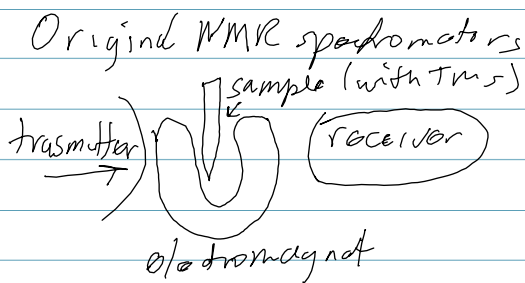 Original NMR spectrometers
sample (with TMS)
trasmitter
receiver
electromagnet